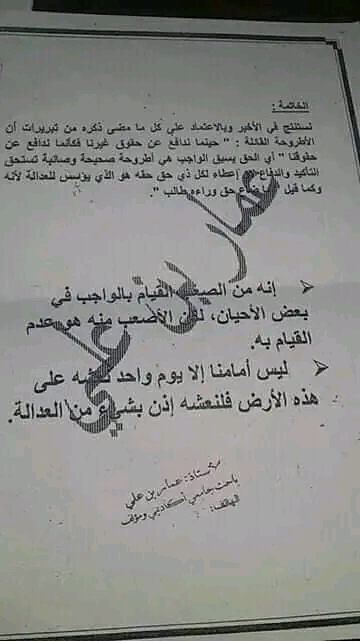 الخاتمة :
نستنتج في الأخير وبالاعتماد علي كل ما مضى ذكره من تبريرات أن
الأطروحة القائلة : " حينما ندافع عن حقوق غيرنا فكأنما ندافع عن
حقوقنا " أي الحق يسبق الواجب هي أطروحة صحيحة وصائبة تستحق
التأكيد والدفاع إعطاء لكل ذي حق حقه هو الذي يؤسس للعدالة لأنه
وكما قيل ضاع حق وراءه طالب ".
إنه من الصعب القيام بالواجب في
بعض الأحيان، لكن الأصعب منه هو عدم
القيام به.
ليس أمامنا إلا يوم واحد نعيشه على
هذه الأرض فلنعشه إذن بشيء من العدالة.
عمار بن علي
الأستاذ: عمار بن علي
باحث جامعي أكاديمي ومؤلف
الهاتف: